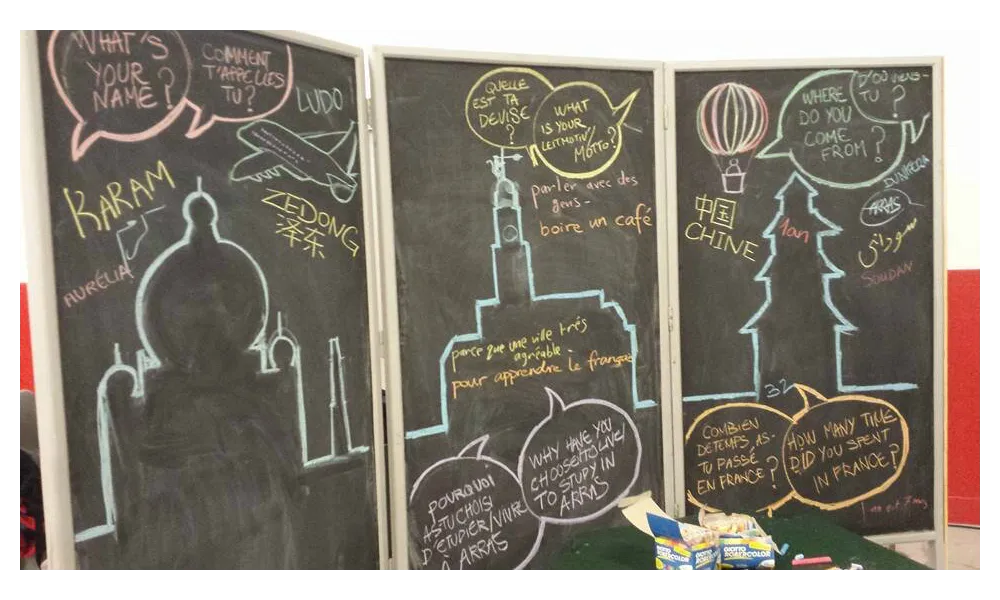 WHAT'S
YOUR
NAME?
COMMENT
T'APPELLES
TU?
LUDO
KARAM
ZEDONG
泽东
AURÉLIA
QUELLE
EST TA
DEVISE
?
WHAT
IS YOUR
LEITMOTIV/
MOTTO?
parler avec des
gens-
boire un café
parce que une ville très
agréable.
pour apprendre le français
POURQUOI
AS TU CHOISI
D'ÉTUDIER/VIVRE
À ARRAS
WHY HAVE YOU
CHOOSEN TO LIVE/
TO STUDY IN
ARRAS
WHERE
DO YOU
COME
FROM?
D'OÙ VIENS-
TU ?
中国
CHINE
1an
ARRAS
SOUDAN
32
COMBIEN
DE TEMPS AS-
TU PASSÉ
EN FRANCE?
HOW MANY TIME
DID YOU SPENT
IN FRANCE?
1 an et 7 mois
GIOTTO
ROBERCOLOR
GIOTTO
ROBERCOLOR